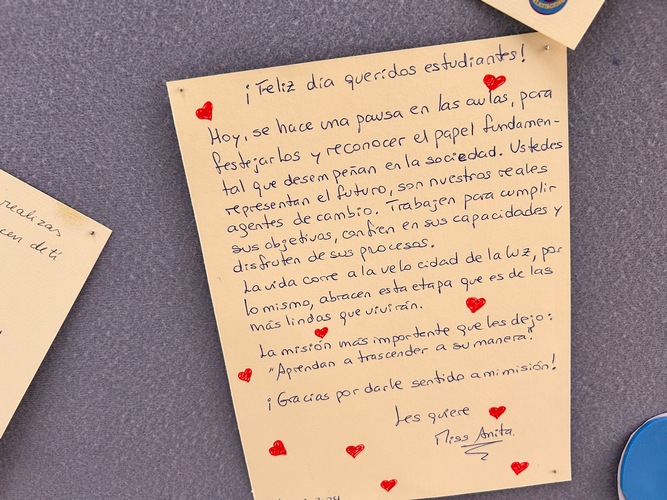 ¡Feliz día queridos estudiantes!
Hoy, se hace una pausa en las aulas, para
festejarlos y reconocer el papel fundamen-
tal que desempeñan en la sociedad. Ustedes
representan el futuro, son nuestros reales
agentes de cambio. Trabajen para cumplir
sus objetivos, confíen en sus capacidades y
disfruten de sus procesos.
La vida corre a la velocidad de la luz, por
lo mismo, abracen esta etapa que es de las
más lindas que vivirán.
La misión más importante que les dejo:
"Aprendan a trascender a su manera."
¡Gracias por darle sentido a mi misión!
Les quiere
Miss Anita
realizar
cen de ti